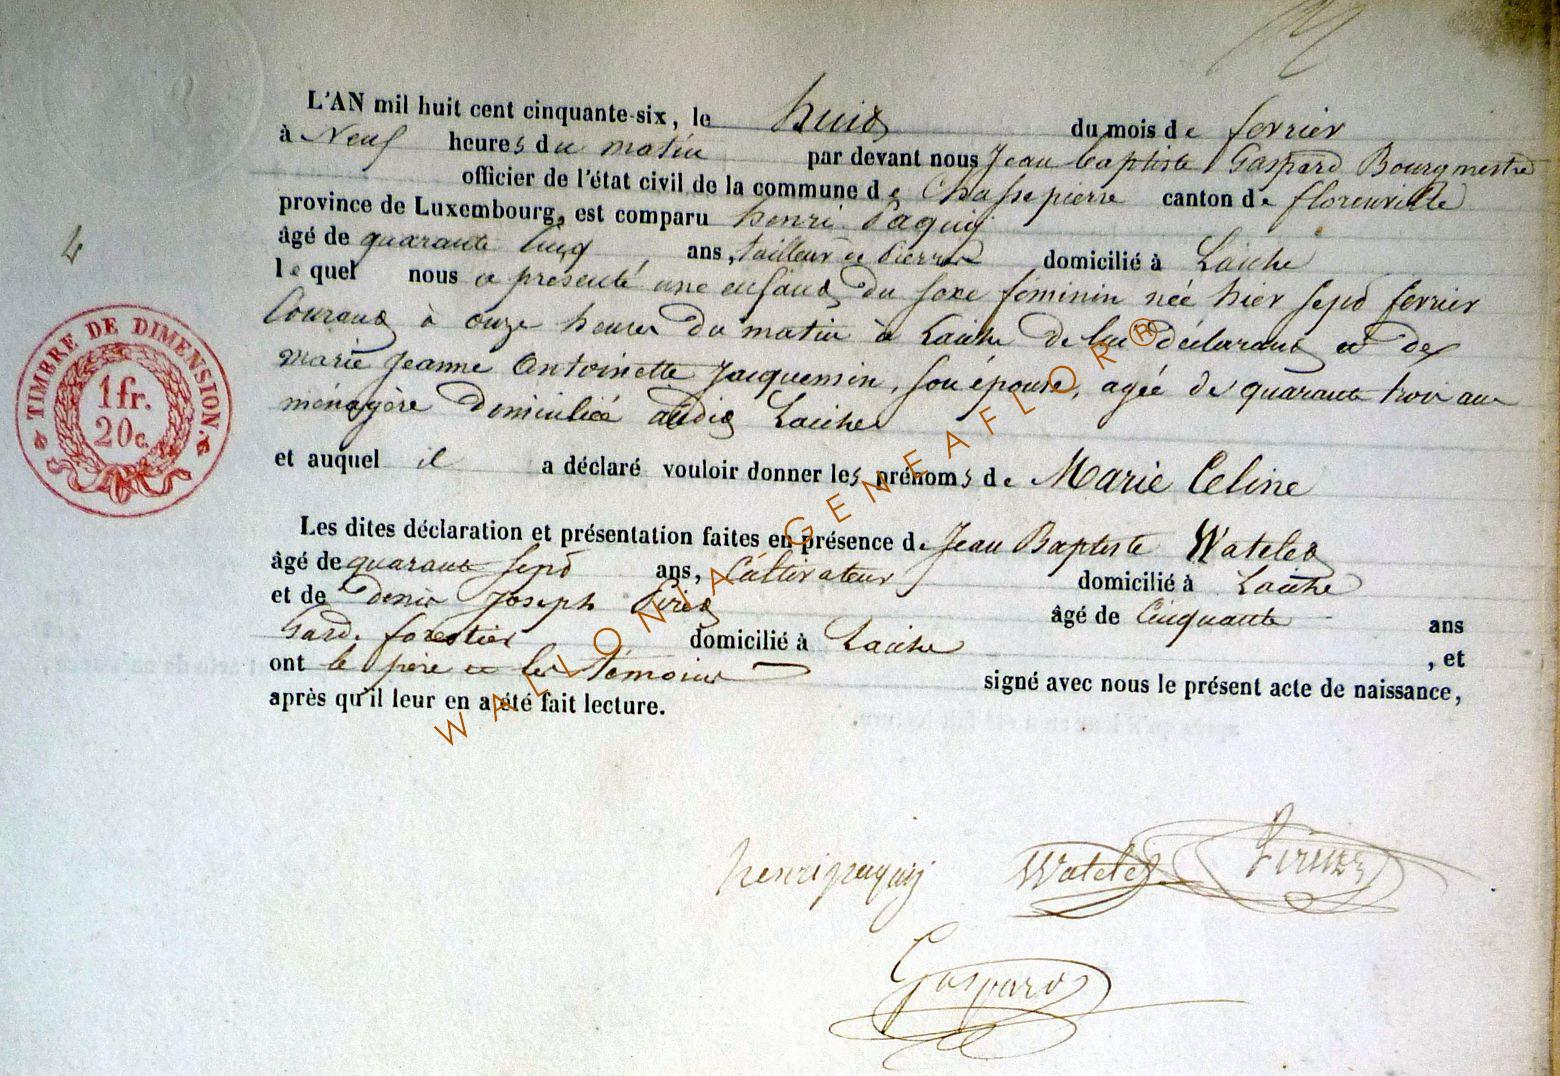 L'AN mil huit cent cinquante-six, le huit du mois de fevrier
à Neuf heures du matin par devant nous Jean baptiste Gaspard Bourgmestre
officier de l'état civil de la commune de Chassepierre canton de florenville
province de Luxembourg, est comparu henri Paquij
âgé de quarante Cinq ans, tailleur de Pierre domicilié à Laiche
lequel nous a présenté une enfant du sexe féminin née hier sept fevrier
Courant à onze heures du matin à Laiche de lui déclarant et de
Marie Jeanne Antoinette Jacquemin, son épouse, agée de quarante trois ans
ménagère domiciliée audit Laiche
et auquel il a déclaré vouloir donner les prénoms de Marie Celine
Les dites déclaration et présentation faites en présence de Jean Baptiste Watelet
âgé de quarante sept ans, Cultivateur domicilié à Laiche
et de denis Joseph âgé de Cinquante ans
Garde forestier domicilié à Laiche , et
ont le père et les témoins signé avec nous le présent acte de naissance,
après qu'il leur en a été fait lecture.
henri paquij Watelet
Gaspard
TIMBRE DE DIMENSION.
1 fr.
20 c.
4
WALLONIA GENEAFLOR®